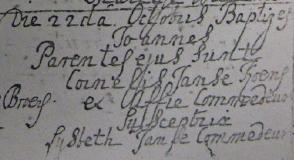 Die 22da. Octobris Baptizat
Joannes
Parentes ejus Sunt
Cornelis Janse Koens
Broers. et Affie Commedeur
Susceptrix
Lysbeth Janse Commedeur